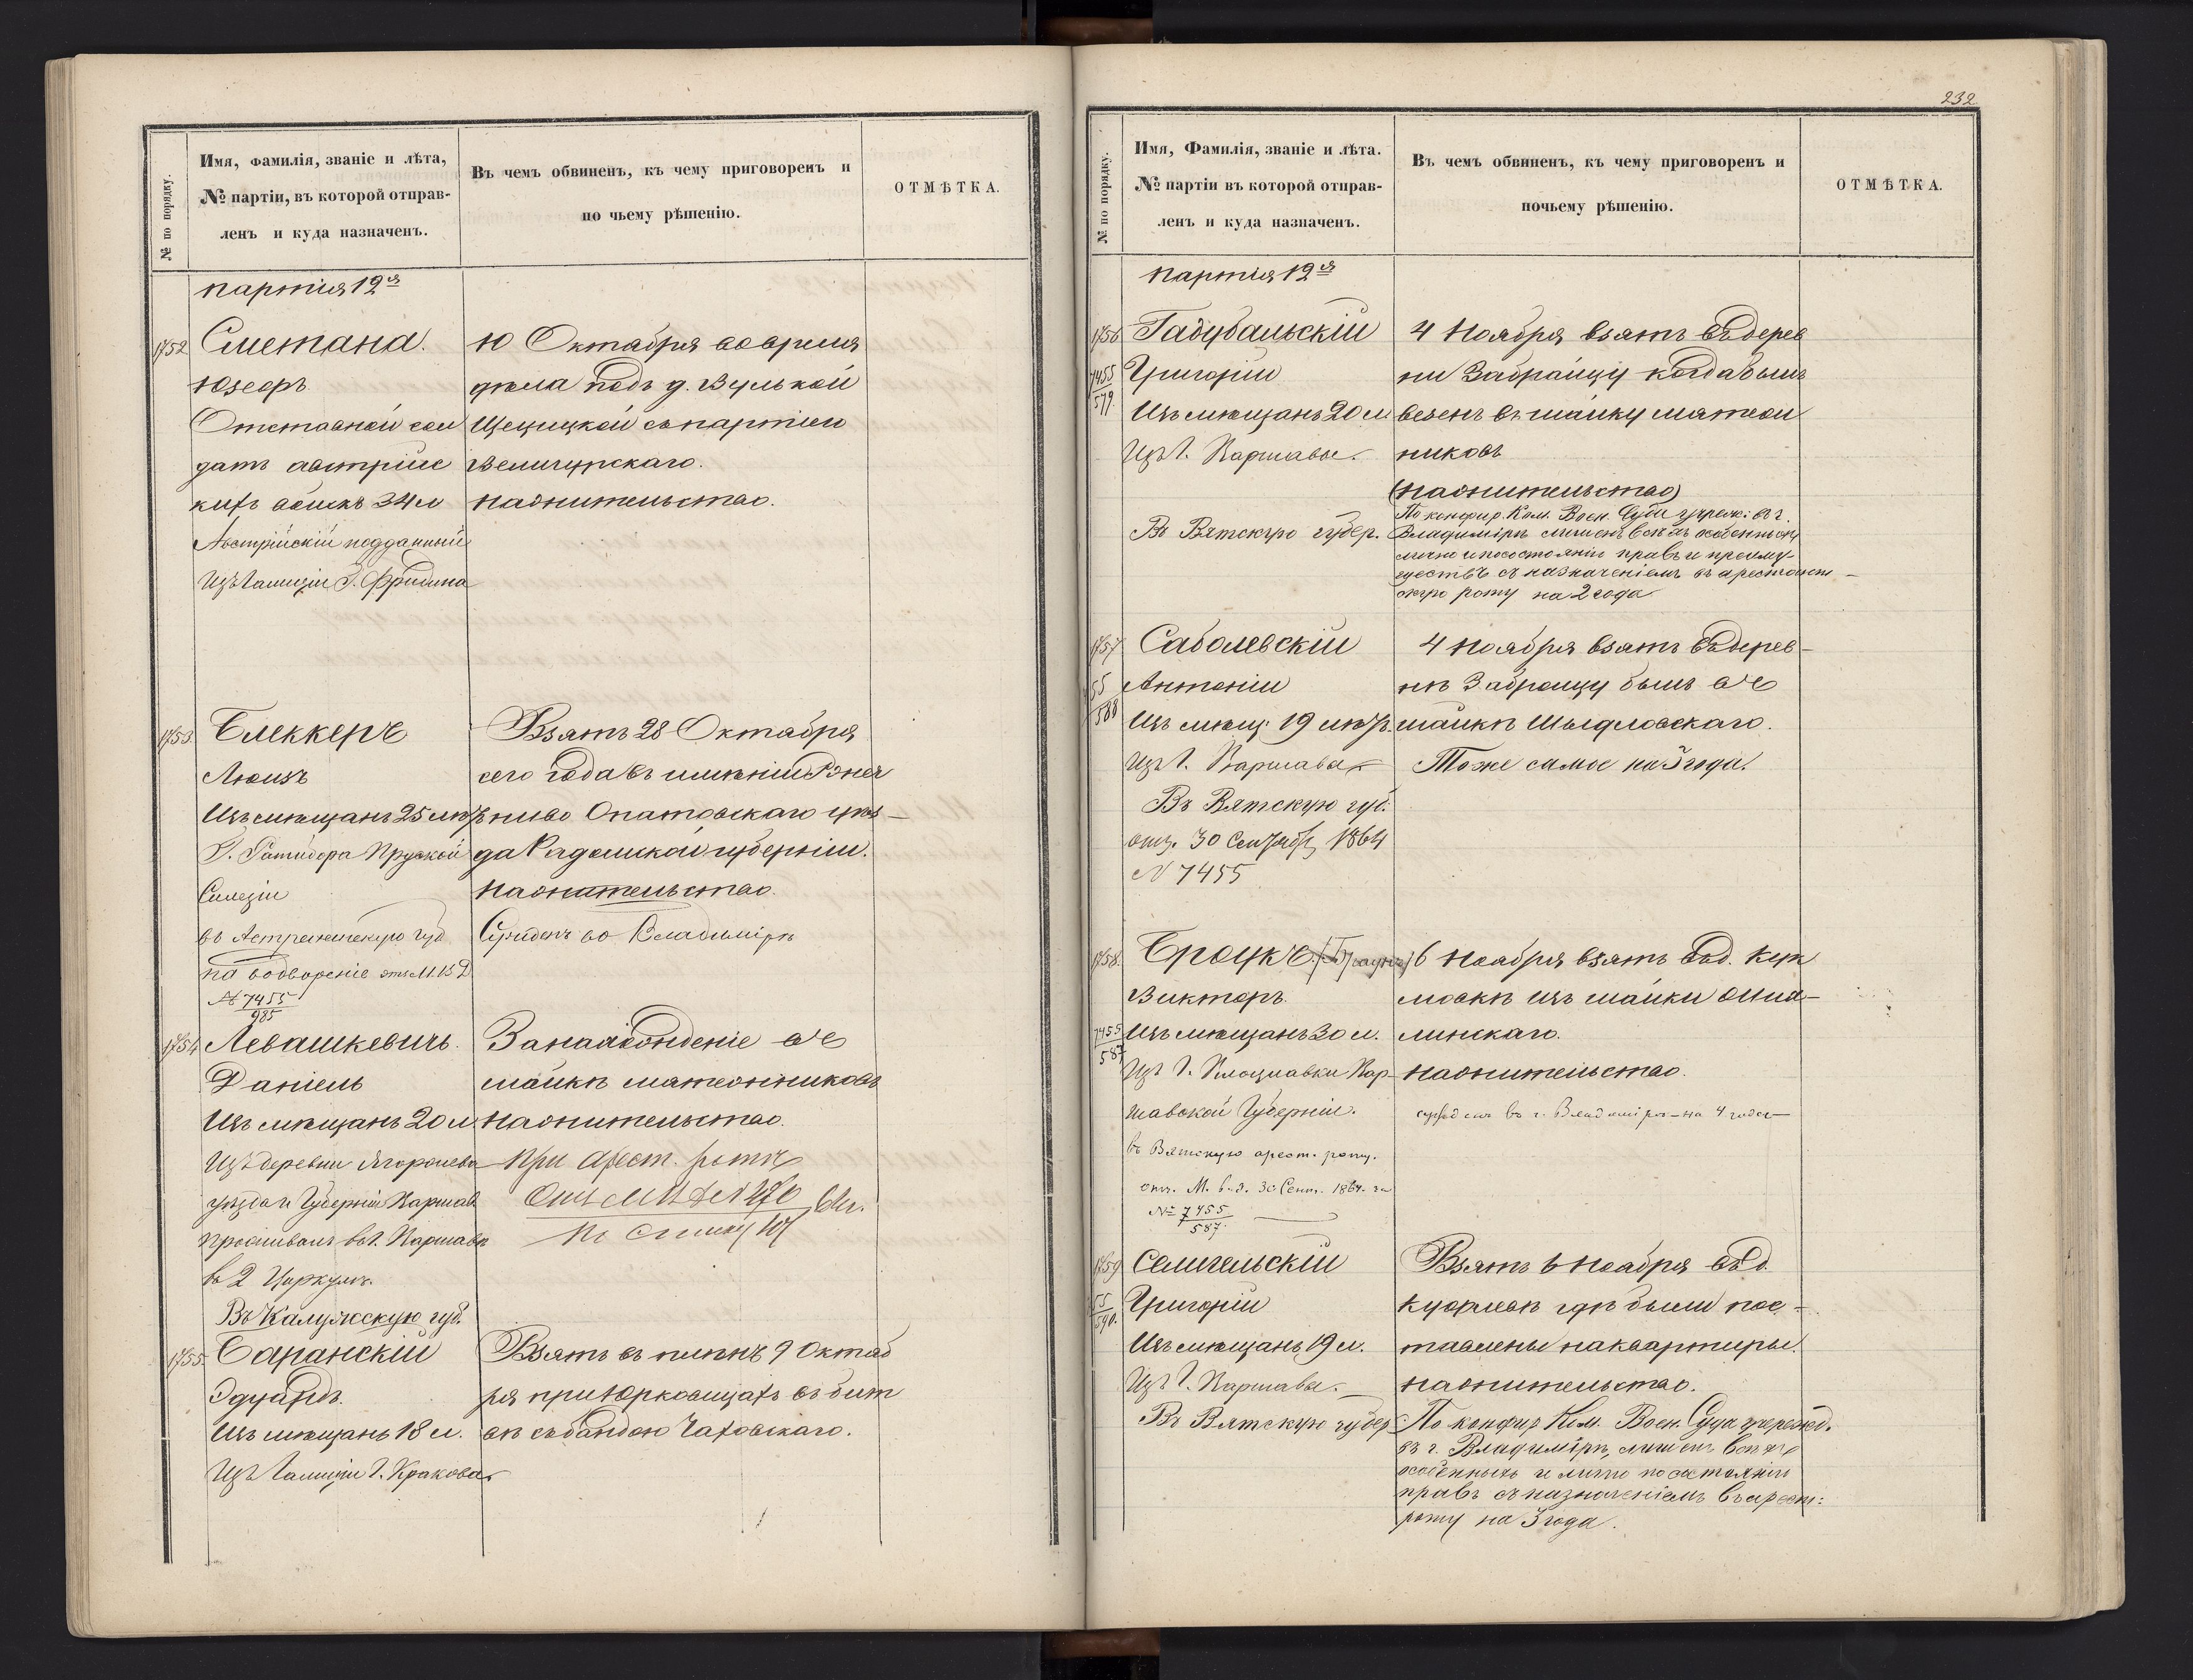 № по порядку.
Имя, фамилія, званіе и лѣта,
№ партіи, въ которой отправ-
ленъ и куда назначенъ.
Въ чемъ обвиненъ, къ чему приговоренъ и
по чьему рѣшенію.
ОТМѢТКА.
партія 12я
1752
Сметана.
Юзефъ
Отставной сол
датъ австрійс
кихъ войскъ 34 л
Австрійскій подданный
Изъ Галиціи Г.
10 Октября во время
дѣла подъ д. Вулькой
съ партіею
наонительство.
1753.
Блеккеръ
Люизъ
Изъ мѣщанъ 25 лѣтъ
Г. Ратибора Прусской
Силезіи
въ Астраханскую губ
на водвореніе
№ 7455
985
Взятъ 28 Октября
сего года въ имѣніи
Опатовскаго уѣз
да Радомской губерніи.
наонительство.
Сужденъ во Владимірѣ
1754
Левашкевичъ.
Даніель
Изъ мѣщанъ 20 л
Изъ деревни
уѣзда и Губерніи Варшав
проживалъ въ г. Варшавѣ
въ 2 Циркулѣ.
Въ Калужскую губ.
За нахожденіе въ
шайкѣ мятежниковъ
наонительство.
При арест. ротѣ
По списку 107
1755.
Баранскій
Эдуардъ.
Изъ мѣщанъ 18 л.
Изъ Галиціи Г. Кракова
Взятъ въ плѣнъ 9 Октяб
ря при Юрковицахъ въ бит
вѣ съ бандою Чаховскаго.
232
№ по порядку.
Имя, Фамилія, званіе и лѣта.
№ партіи въ которой отправ-
ленъ и куда назначенъ.
Въ чемъ обвиненъ, къ чему приговоренъ и
почьему рѣшенію.
ОТМѢТКА.
партія 12я
1756
Гадубальскій
7455
579.
Григорій
Изъ мѣщанъ 20 л
Изъ Г. Варшавы.
Въ Вятскую губер.
4 Ноября взятъ въ дерев
ни когда былъ
везенъ въ шайку мятеж
никовъ
(наонительство)
По конфир. Ком. Воен. Суда учреж: въ г.
Владимірѣ лишенъ всѣхъ особенныхъ
лично и по состоянію правъ и преиму-
ществъ съ назначеніемъ въ арестант-
скую роту на 2 года
1757
Саболевскій
55
588
Антоній
Изъ мѣщ. 19 лѣтъ.
Изъ Г. Варшава
Въ Вятскую губ.
отз. 30 Сентября 1864
№ 7455
4 ноября взятъ въ дерев-
нѣ былъ въ
шайкѣ Шыдловскаго.
Тоже самое на 3 года.
1758.
Броцкъ.
Викторъ.
7455
587
Изъ мѣщанъ 30 л.
Изъ Г. Влоцлавки Вар
шавской Губерніи.
въ Вятскую арест. роту.
отз. М. в. д. 30 Сент. 1864. за
№ 7455
587.
6 ноября взятъ въ д.
изъ шайки
линскаго.
наонительство.
сужденъ въ г. Владимірѣ-на 4 года
1759
Семигельскій
55
590.
Григорій
Изъ мѣщанъ 19 л.
Изъ Г. Варшавы.
Въ Вятскую губер
Взятъ 6 ноября въ д.
гдѣ были пос-
тавлены на квартиры.
наонительство.
По конфир Ком. Воен. Суда учережд.
въ г. Владимірѣ, лишенъ всѣхъ
особенныхъ и лично по состоянію
правъ съ назначеніемъ въ арест:
роту на 3 года.